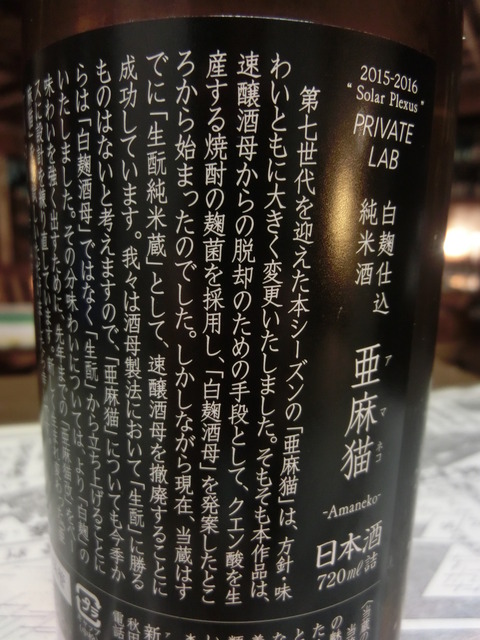 2015-2016
"Solar Plexus"
PRIVATE
LAB
白麹仕込
純米酒
亜麻猫
アマネコ
-Amaneko-
日本酒
720ml詰
第七世代を迎えた本シーズンの「亜麻猫」は、方針・味
わいともに大きく変更いたしました。そもそも本作品は、
速醸酒母からの脱却のための手段として、クエン酸を生
産する焼酎の麹菌を採用し、「白麹酒母」を発案したとこ
ろから始まったのでした。しかしながら現在、当蔵はす
でに「生酛純米蔵」として、速醸酒母を撤廃することに
成功しています。我々は酒母製法において「生酛」に勝る
ものはないと考えますので、「亜麻猫」についても今季か
らは「白麹酒母」ではなく「生酛」から立ち上げることに
いたしました。その分味わいについては、より「白麹」の
味わいを強く出すために、先年までの「亜麻猫
秋田
電話